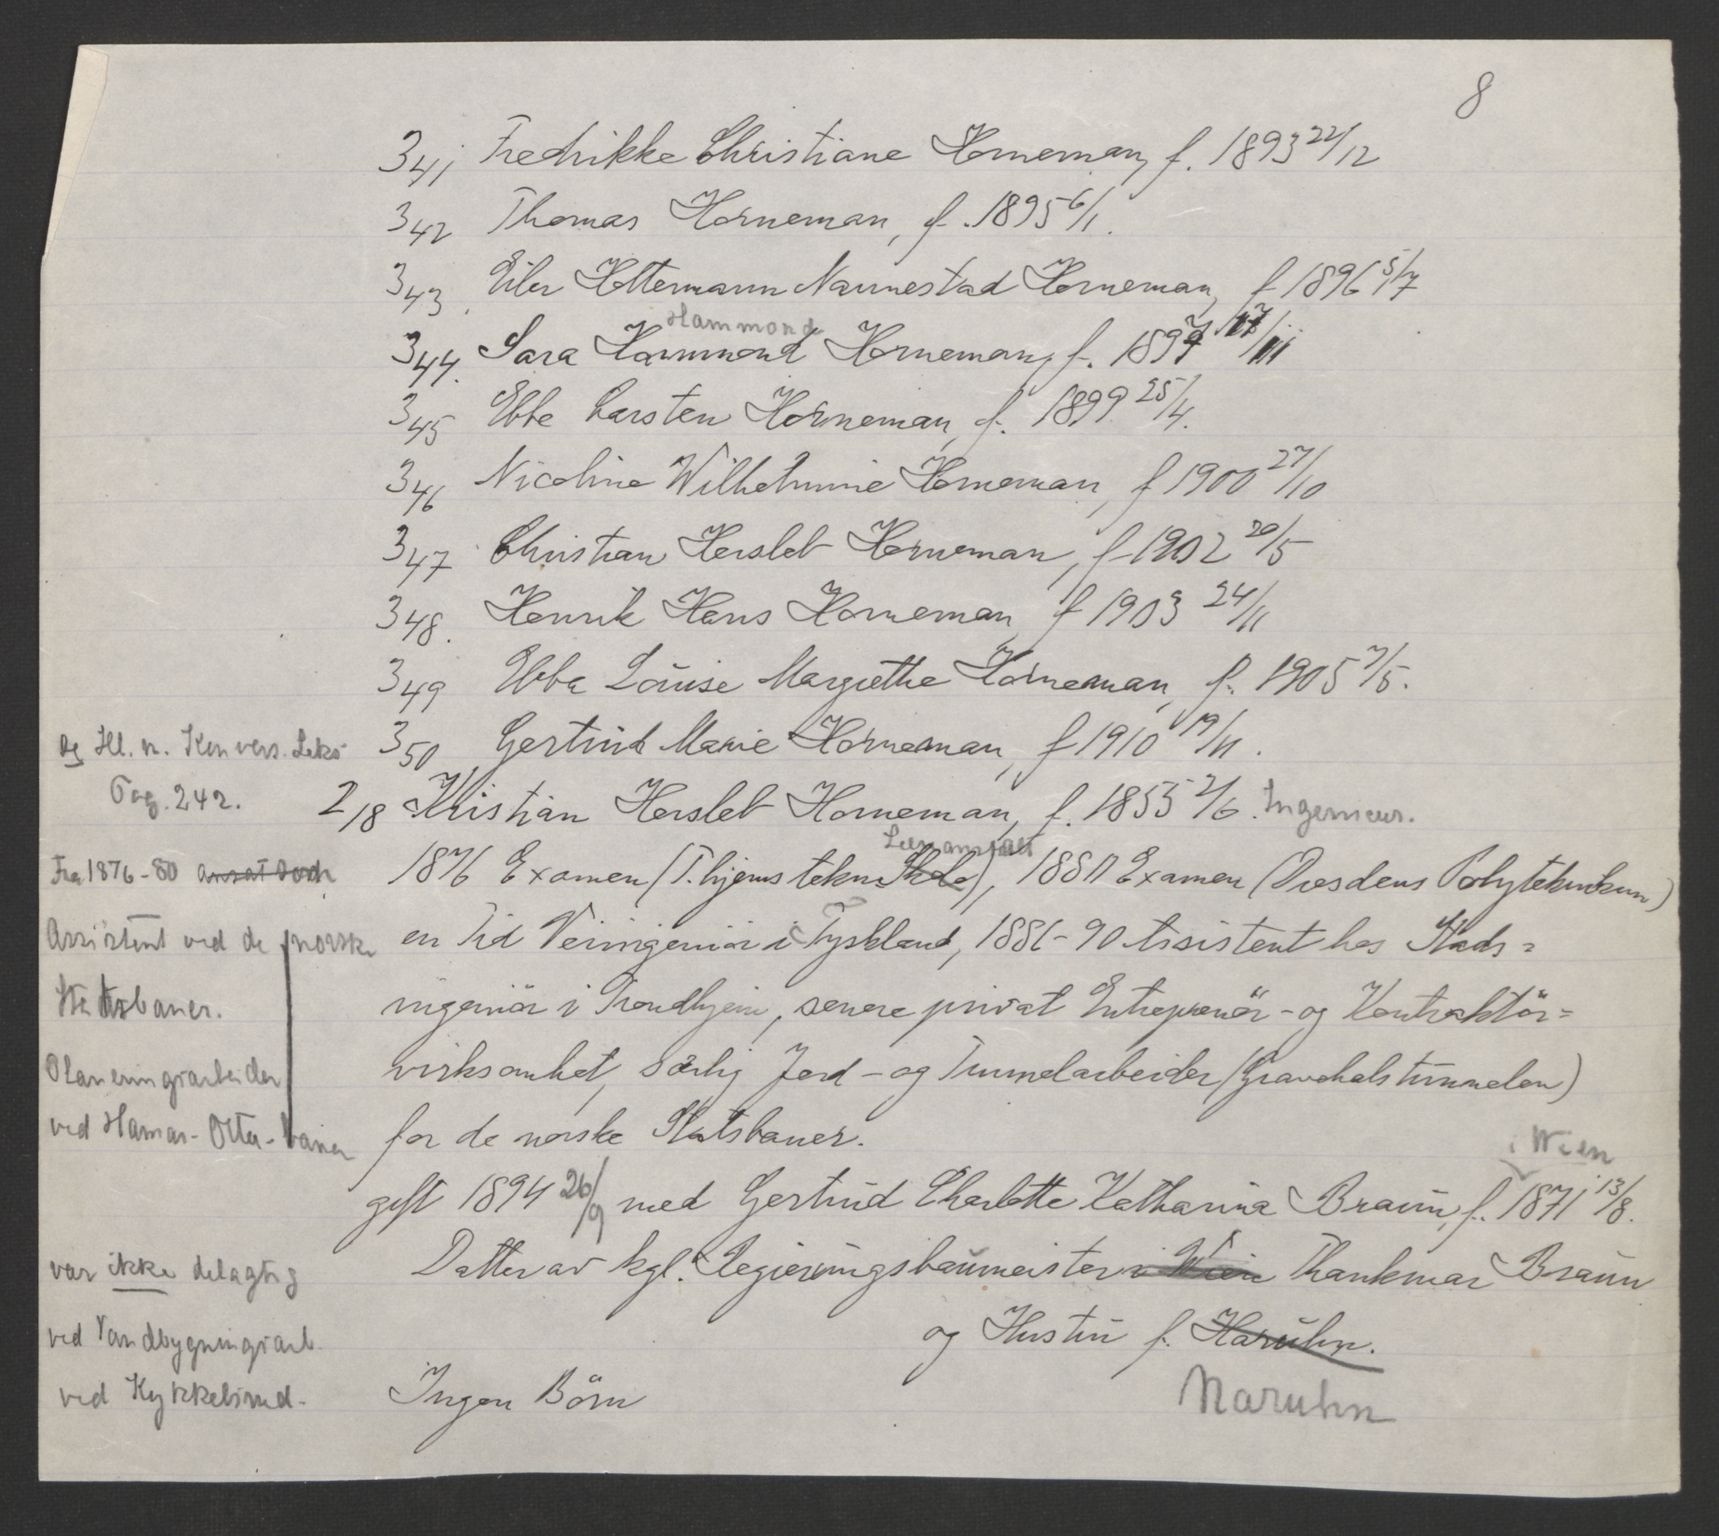 8
341 Fredrikke Christiane Horneman, f. 1893 22/12
342 Thomas Horneman, f. 1895 6/1.
343. Eiler Hottermann Nannestad Horneman, f 1896 5/7
Hammond
344. Sara Hammond Horneman, f. 1897 17/11
345 Ebbe Carsten Horneman, f. 1899 25/4.
346 Nicoline Wilhelmine Horneman, f 1900 27/10
347 Christian Hersleb Horneman, f 1902 20/5
348. Henrik Hans Horneman, f 1903 24/11
349 Ebba Louise Margrethe Horneman, f. 1905 7/5.
350 Gertrud Marie Horneman, f 1910 19/11.
Ill. n. Konvers. Leks
Pag. 242.
2/18 Kristian Hersleb Horneman, f. 1855 2/6. Ingeniør.
Læreanstalt
1876 Examen (T.hjems tekn. Skole), 1880 Examen (Dresdens Polyteknikum)
en Tid Veiingeniør i Tyskland, 1886-90 Assistent hos Stads=
ingeniör i Trondhjem, senere privat Entreprenör- og Kontraktör=
virksomhet, særlig Jord- og Tunnelarbeider (Gravehalstunnelen)
for de norske Statsbaner.
Fra 1876-80 ansat som
Assistent ved de norske
Statsbaner.
Planeringsarbeider
ved Hamar-Otta-banen
i Wien
gift 1894 26/9 med Gertrud Charlotte Katharina Braun, f. 1871 13/8.
Datter av kgl. Regierungsbaumeister i Wien Thankmar Braun
og Hustru f. Haruhn.
Naruhn
Ingen Börn
var ikke delagtig
ved Vandbygningsarb.
ved Kykkelsrud.